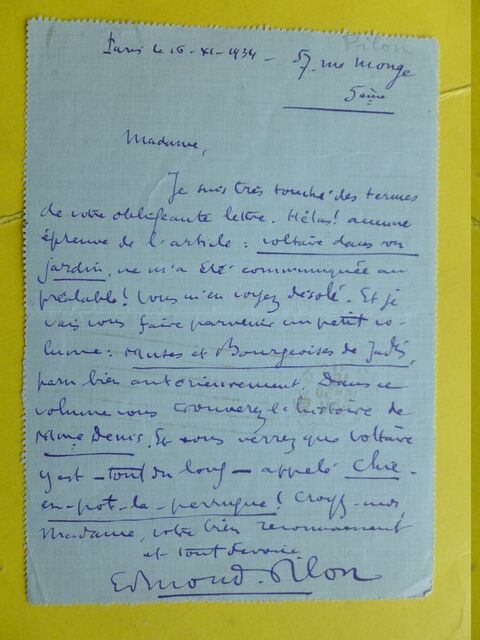 Pilon
Paris le 16-XI-1934-
57, rue Monge
5ème
Madame,
Je suis très touché des termes
de votre obligeante lettre. Hélas! aucune
épreuve de l'article : Voltaire dans son
jardin, ne m'a été communiquée au
préalable! Vous m'en voyez désolé. Et je
vais vous faire parvenir un petit vo-
lume : Muses et Bourgeoises de Jadis,
paru bien antérieurement. Dans ce
volume vous trouverez l'histoire de
Mme Denis. Et vous verrez que Voltaire
y est - tout du long - appelé Chie-
en-pot-la-perruque! Croyez-moi,
Madame, votre bien reconnaissant
et tout dévoué
Edmond Pilon